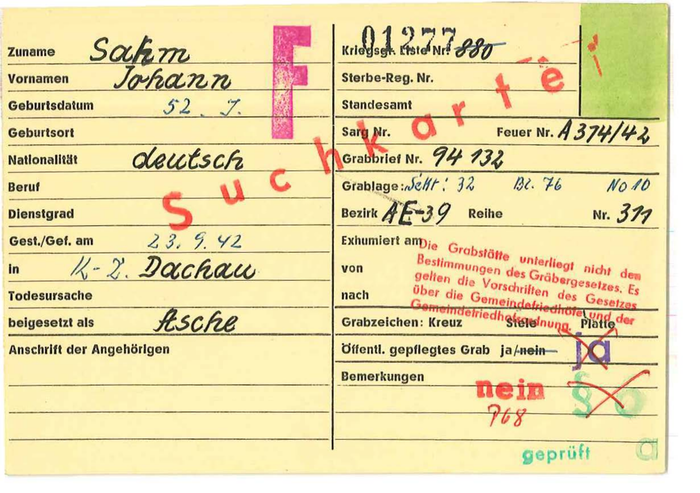 Zuname Sahm
Vornamen Johann
Geburtsdatum 52. J.
Geburtsort
Nationalität deutsch
Beruf
Dienstgrad
Gest./Gef. am 23.9.42
in K-Z. Dachau
Todesursache
beigesetzt als Asche
Anschrift der Angehörigen
F
Suchkarte!
01277
Kriegsgr. Liste Nr. 880
Sterbe-Reg. Nr.
Standesamt
Sarg Nr. Feuer Nr. A 374/42
Grabbrief Nr. 94 132
Grablage: Sekt: 32 Bl. 76 No 10
Bezirk AE-39 Reihe Nr. 311
Exhumiert am
von
nach
Die Grabstätte unterliegt nicht den
Bestimmungen des Gräbergesetzes. Es
gelten die Vorschriften des Gesetzes
über die Gemeindefriedhöfe und der
Gemeindefriedhofsordnung.
Grabzeichen: Kreuz Stele Platte
Öffentl. gepflegtes Grab ja/nein ja
Bemerkungen
nein
P68
geprüft a